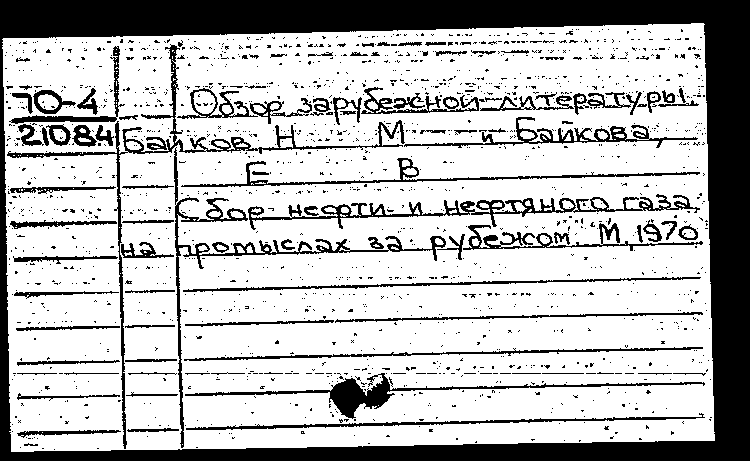 70-4 Обзор зарубежной литературы.
21084 Байков, Н М и Байкова,
Е В
Сбор нефти и нефтяного газа
на промыслах за рубежом. М, 1970